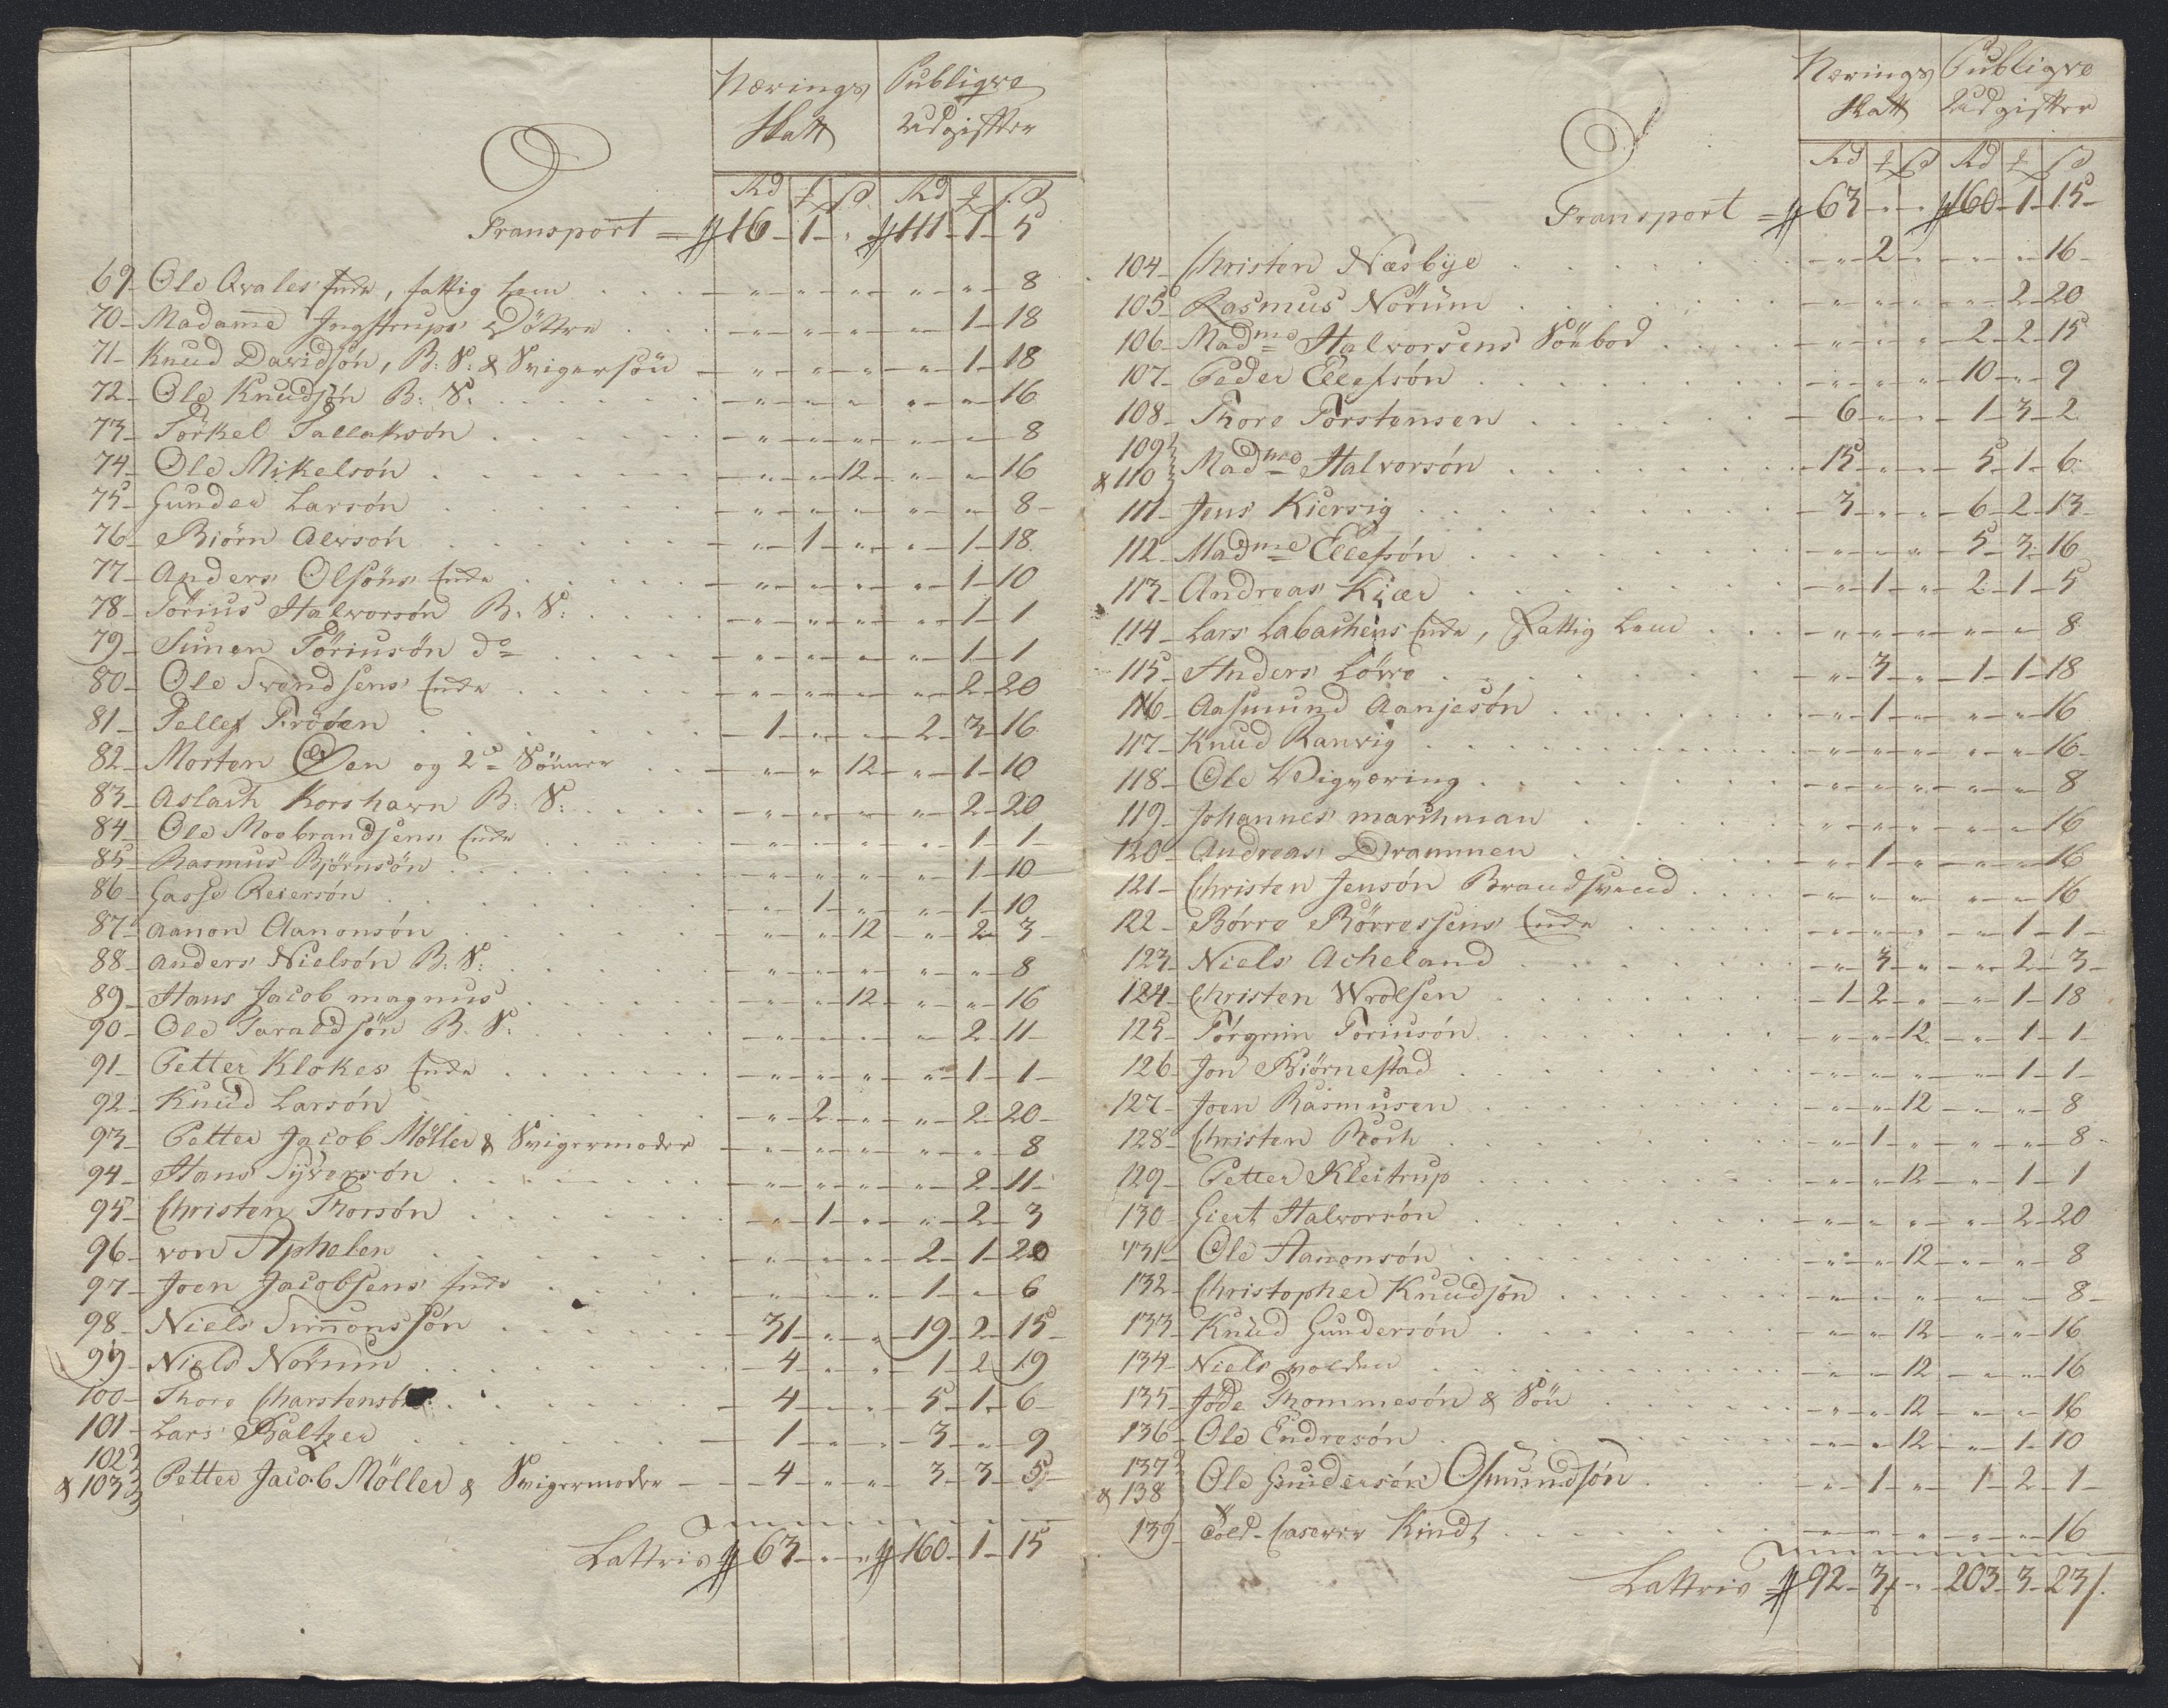 Nærings Publiqve
Skatt Udgifter
Rd ₰ ß Rd ₰ ß
Transport = 16 - 1 - " 111 - 1 - 5
69 - Ole Qvales Enke, fattig Lem - " - " - " - " - " - 8
70 - Madame Ingstrups Döttre - " - " - " - " - 1 - 18
71 - Knud Davidsön, B: S: & Svigersön - " - " - " - " - 1 - 18
72 - Ole Knudsön B: S: - " - " - " - " - " - 16
73 - Törkel Tallaksön - " - " - " - " - " - 8
74 - Ole Mikelsön - " - " - 12 - " - " - 16
75 - Gunder Larsön - " - " - " - " - " - 8
76 - Biörn Alvsön - " - 1 - " - " - 1 - 18
77 - Anders Olsöns Enke - " - " - " - " - 1 - 10
78 - Törius Halvorsön B: S: - " - " - " - " - 1 - 1
79 - Simen Töriusön do - " - " - " - " - 1 - 1
80 - Ole Svendsens Enke - " - " - " - " - 2 - 20
81 - Tellef Fröden - 1 - " - " - 2 - 3 - 16
82 - Morten Öen og 2de Sönner - " - " - 12 - " - 1 - 10
83 - Aslach Korshavn B: S: - " - " - " - " - 2 - 20
84 - Ole Moebrandsens Enke - " - " - " - " - 1 - 1
85 - Rasmus Björnsön - " - " - " - " - 1 - 10
86 - Gasse Reiersön - " - 1 - " - " - 1 - 10
87 - Aanon Aanonsön - " - " - 12 - " - 2 - 3
88 - Anders Nielsön B: S: - " - " - " - " - " - 8
89 - Hans Jacob magnus - " - " - 12 - " - " - 16
90 - Ole Taraldsön B. S: - " - " - " - " - 2 - 11
91 - Petter Klokes Enke - " - " - " - " - 1 - 1
92 - Knud Larsön - " - 2 - " - " - 2 - 20
93 - Petter Jacob Möller & Svigermoder - " - " - " - " - " - 8
94 - Hans Syversön - " - " - " - " - 2 - 11
95 - Christen Thorsön - " - 1 - " - " - 2 - 3
96 - von Aphelen - " - " - " - 2 - 1 - 20
97 - Joen Jacobsens Enke - " - " - " - 1 - " - 6
98 - Niels Simonssön - 31 - " - " - 19 - 2 - 15
99 - Niels Nörum - 4 - " - " - 1 - 2 - 19
100 - Thore - 4 - " - " - 5 - 1 - 6
101 - Lars Baltzer - 1 - " - " - 3 - " - 9
102
& 103 Petter Jacob Möller & Svigermoder - 4 - " - " - 3 - 3 - 5
Lattris 63 - " - " 160 - 1 - 15
Nærings Publiqve
Skatt Udgifter
Rd ₰ ß Rd ₰ ß
Transport = 63 - " - " 160 - 1 - 15
104 - Christen Næsbye - " - 2 - " - " - " - 16
105 - Rasmus Nörum - " - " - " - " - 2 - 20
106 - Madme Halvorsens Söebod - " - " - " - 2 - 2 - 15
107 - Peder Ellefsön - " - " - " - 10 - " - 9
108 - Thore Torstensen - 6 - " - " - 1 - 3 - 2
109
& 110 Madme Halvorsön - 15 - " - " - 5 - 1 - 6
111 - Jens Kiervig - 3 - " - " - 6 - 2 - 13
112 - Madme Ellefsön - " - " - " - 5 - 3 - 16
113 - Andreas Kiær - " - 1 - " - 2 - 1 - 5
114 - Lars Labachens Enke, Fattig Lem - " - " - " - " - " - 8
115 - Anders Lövre - " - 3 - " - 1 - 1 - 18
116 - Aasmund Aanjesön - " - 1 - " - " - " - 16
117 - Knud Ranvig - " - " - " - " - " - 16
118 - Ole Wigværing - " - " - " - " - " - 8
119 - Johannes marchman - " - " - " - " - " - 16
120 - Andreas Drammen - " - 1 - " - " - " - 16
121 - Christen Jensön Brandsvend - " - " - " - " - " - 16
122 - Börre Börressens Enke - " - " - " - " - 1 - 1
123 - Niels Acheland - " - 3 - " - " - 2 - 3
124 - Christen Wrolsen - 1 - 2 - " - " - 1 - 18
125 - Törgrim Toriusön - " - " - 12 - " - 1 - 1
126 - Jon Biörnestad - " - " - " - " - 1 - 1
127 - Joen Rasmusen - " - " - 12 - " - " - 8
128 - Christen Roch - " - 1 - " - " - " - 8
129 - Petter Kleitrup - " - " - 12 - " - 1 - 1
130 - Giert Halvorsön - " - " - " - " - 2 - 20
131 - Ole Aanonsön - " - " - 12 - " - " - 8
132 - Christopher Knudsön - " - " - " - " - " - 8
133 - Knud Gundersön - " - " - 12 - " - " - 16
134 - Niels molden - " - " - 12 - " - " - 16
135 - Jöde Thommesön & Sön - " - " - 12 - " - " - 16
136 - Ole Endresön - " - " - 12 - " - 1 - 10
137
& 138 Ole Gundersön Osmundsön - " - 1 - " - 1 - 2 - 1
139 - Told-Caserer Kindt - " - " - " - " - " - 16
Lattris 92 - 3 - " - 203 - 3 - 23